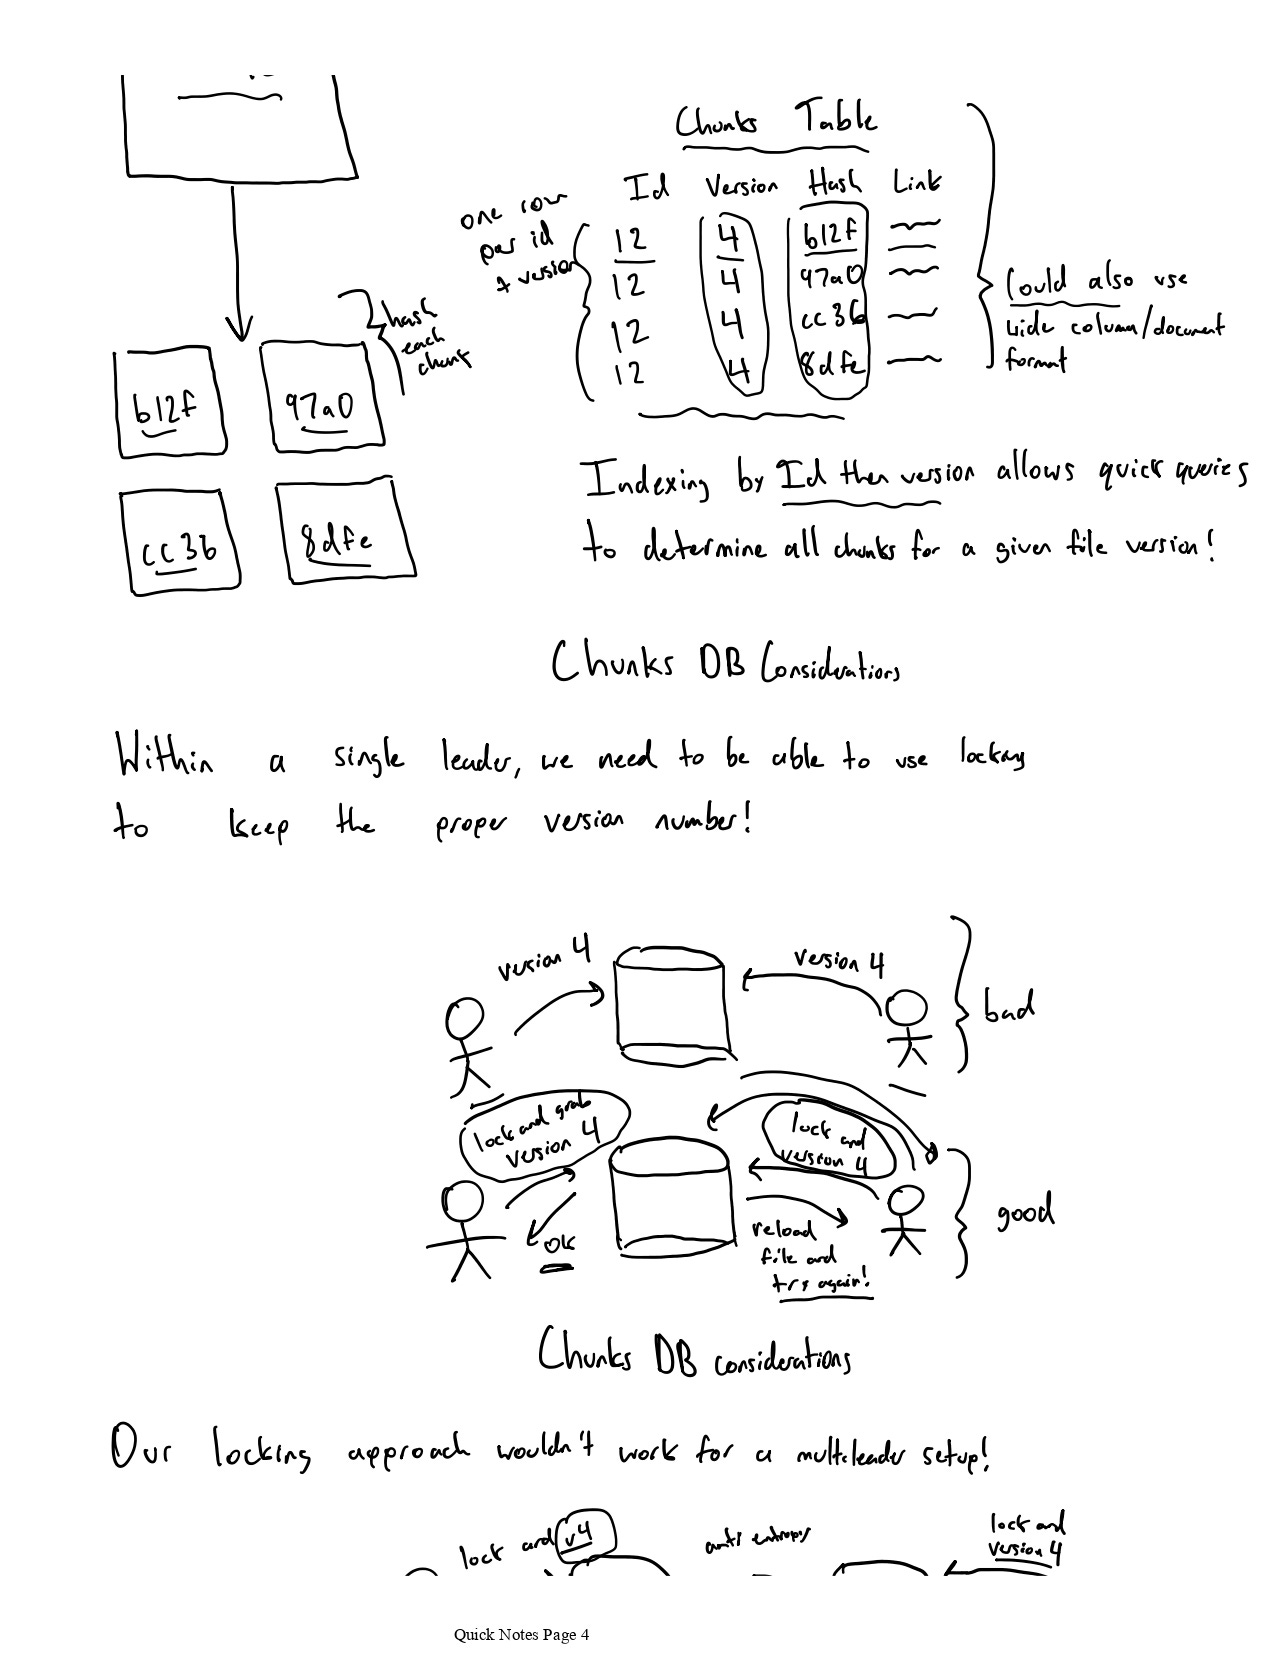 Chunks Table
Id Version Hash Link
one row
per id
+ version
12 4 b12f
12 4 97a0
12 4 cc3b
12 4 8dfe
Could also use
wide column/document
format
hash
each
chunk
b12f 97a0
cc3b 8dfe
Indexing by Id then version allows quick queries
to determine all chunks for a given file version!
Chunks DB Considerations
Within a single leader, we need to be able to use locking
to keep the proper version number!
version 4
version 4
bad
lock and grab
version 4
lock and
version 4
good
ok
reload
file and
try again!
Chunks DB considerations
Our locking approach wouldn't work for a multileader setup!
lock and v4
anti entropy
lock and
version 4
Quick Notes Page 4